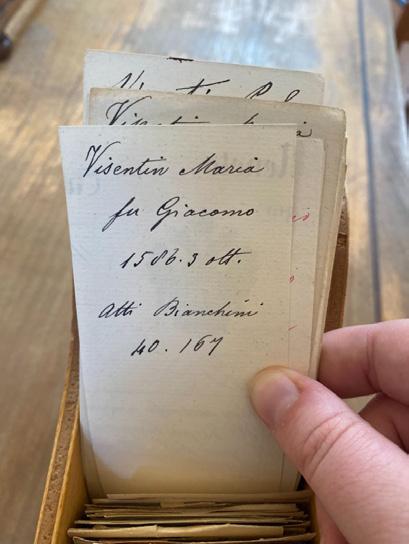 Visentin Maria
fu Giacomo
1586. 3 ott.
Atti Bianchini
40. 167